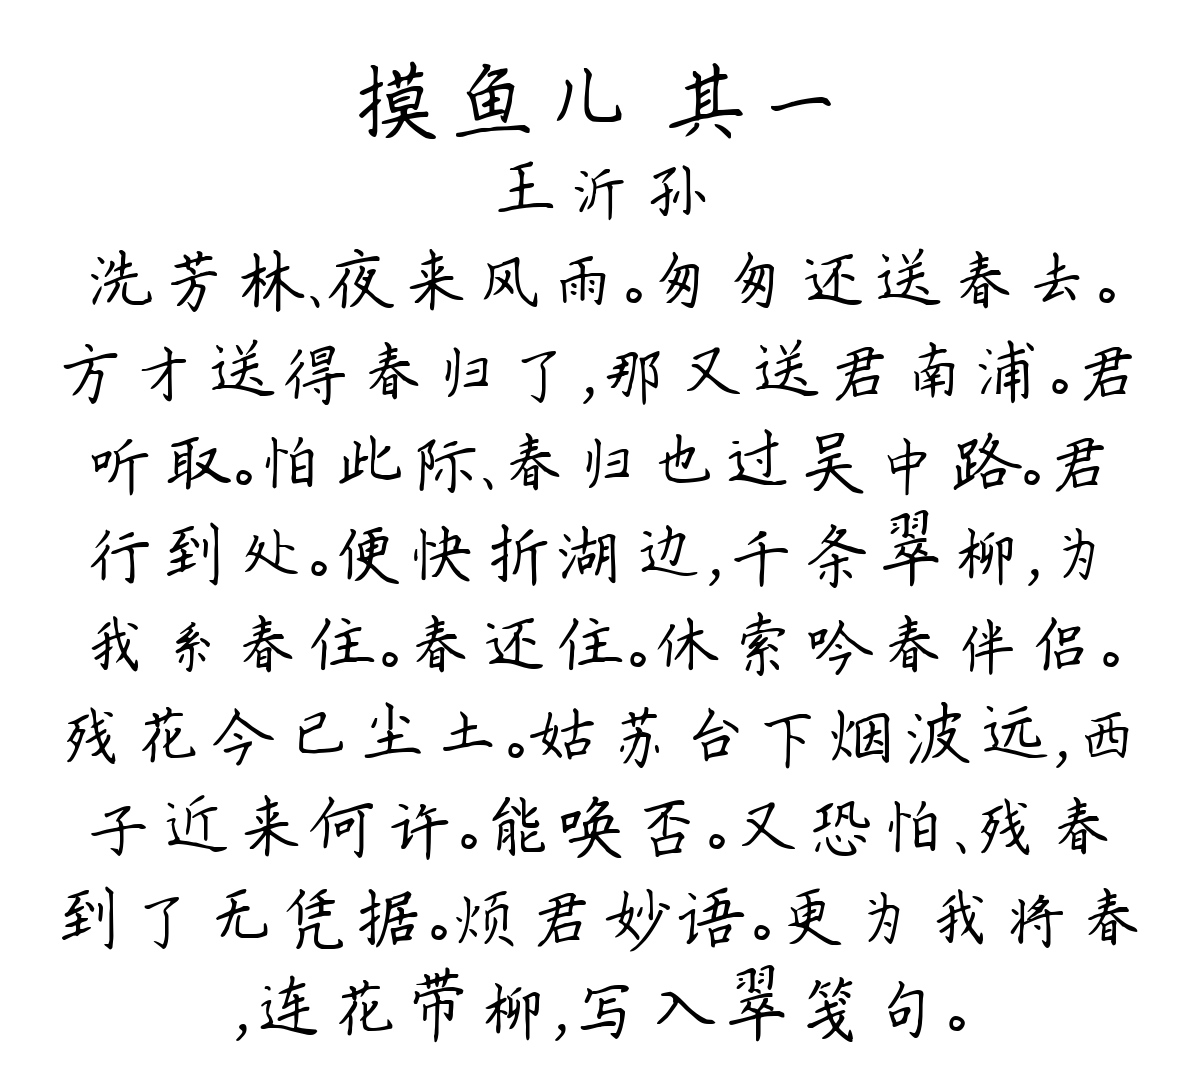 摸鱼儿 其一
王沂孙
洗芳林、夜来风雨。匆匆还送春去。
方才送得春归了,那又送君南浦。君
听取。怕此际、春归也过吴中路。君
行到处。便快折湖边,千条翠柳,为
我系春住。春还住。休索吟春伴侣。
残花今已尘土。姑苏台下烟波远,西
子近来何许。能唤否。又恐怕、残春
到了无凭据。烦君妙语。更为我将春
,连花带柳,写入翠笺句。